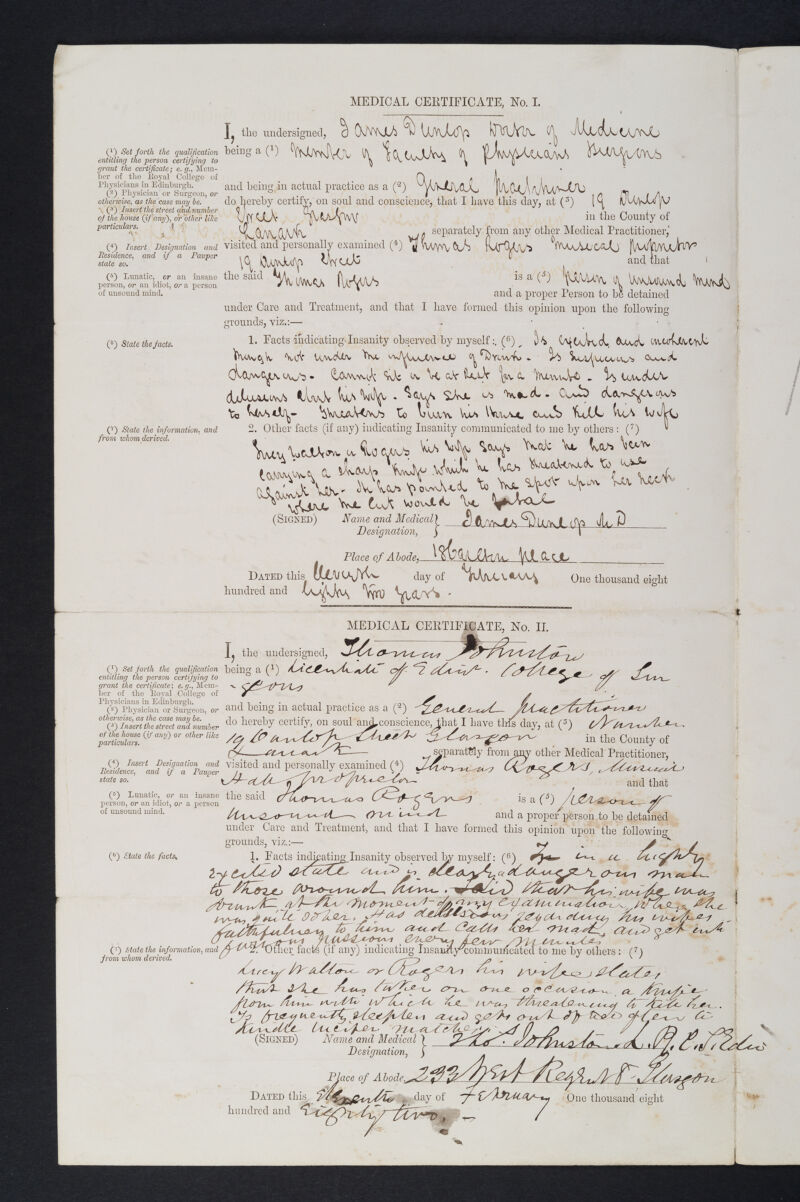 MEDICAL CERTIFICATE, No. I.
I, the undersigned, James Dunlop Doctor of Medicine
being a (¹) Member of Faculty of Physicians Surgeons
and being in actual practice as a (²) General Practitioner
do hereby certify, on soul and conscience, that I have this day, at (³) 19 Dunlop
Street Glasgow in the County of
Lanark separately from any other Medical Practitioner,
visited and personally examined (⁴) Thomas Rogers Musical proprietor
19 Dunlop Street and that
the said Thomas Rogers is a (⁵) person of unsound mind
and a proper Person to be detained
under Care and Treatment, and that I have formed this opinion upon the following
grounds, viz.:—
1. Facts indicating Insanity observed by myself: (⁶) Is excited and incoherent
though not under the influence of Drink. Is Suspicious and
dangerous. Cannot sit or be at Rest for a minute. Is under
delusions about his wife. Says she is mad. and dangerous
to herself. Threatens to burn his House and kill his wife
2. Other facts (if any) indicating Insanity communicated to me by others: (⁷)
Lucy Walton or Rogers his Wife says that he has been
carrying a sharp knife which he has threatened to use
against her. He has pointed to the spot upon her neck
where the cut would be fatal
(SIGNED) Name and Medical Designation, James Dunlop MD
Place of Abode, 18 Carlton place
DATED this Eleventh day of February One thousand eight
hundred and Eighty two years.
(¹) Set forth the qualification
entitling the person certifying to
grant the certificate; e. g., Mem-
ber of the Royal College of
Physicians in Edinburgh.
(²) Physician or Surgeon, or
otherwise, as the case may be.
(³) Insert the street and number
of the house (if any), or other like
particulars.
(⁴) Insert Designation and
Residence, and if a Pauper
state so.
(⁵) Lunatic, or an insane
person, or an idiot, or a person
of unsound mind.
(⁶) State the facts.
(⁷) State the information, and
from whom derived.
MEDICAL CERTIFICATE, No. II.
I, the undersigned, Thomas Johnston
being a (¹) Licentiate of Edinr. College of Sur
-geons
and being in actual practice as a (²) General Practitioner
do hereby certify, on soul and conscience, that I have this day, at (³) Number
19 Dunlop Street Glasgow in the County of
Lanark separately from any other Medical Practitioner,
visited and personally examined (⁴) Thomas Rogers, Musical
Hall proprietor and that
the said Thomas Rogers is a (⁵) person of
unsound mind and a proper person to be detained
under Care and Treatment, and that I have formed this opinion upon the following
grounds, viz.:—
1. Facts indicating Insanity observed by myself: (⁶) Is in a highly
excited state and is clearly a dangerous man
to those around him. Said that his wife was
drunk at the moment of my examination, when she
was quite sober. Has delusions regarding his wife's
faithfulness to him and calls her mad, and gets into
furious passions every few minutes
2. Other facts (if any) indicating Insanity communicated to me by others: (⁷)
Lucy Walton or Rogers his wife states
that she has taken on one occasion a knife
from him with which he was threatening to kill her.
Is frequently sleepless and gets out of bed often to
kindle lucifer matches
(SIGNED) Name and Medical Designation, Thos. Johnston L.R.C.S. Edin
Place of Abode, 233 West Regent St. Glasgow
DATED this Eleventh day of February One thousand eight
hundred and Eighty two.
(¹) Set forth the qualification
entitling the person certifying to
grant the certificate; e. g., Mem-
ber of the Royal College of
Physicians in Edinburgh.
(²) Physician or Surgeon, or
otherwise, as the case may be.
(³) Insert the street and number
of the house (if any) or other like
particulars.
(⁴) Insert Designation and
Residence, and if a Pauper
state so.
(⁵) Lunatic, or an insane
person, or an idiot, or a person
of unsound mind.
(⁶) State the facts.
(⁷) State the information, and
from whom derived.